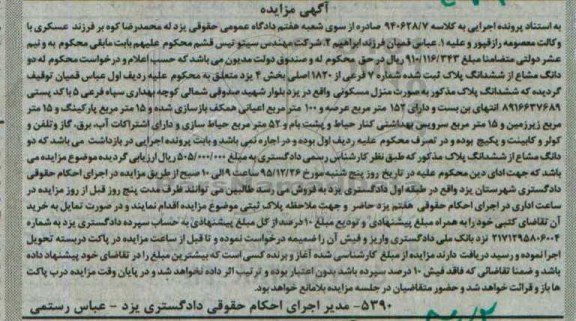 آگهی مزایده
به استناد پرونده اجرایی به کلاسه ۹۴۰۶۲۸/۷ صادره از سوی شعبه هفتم دادگاه عمومی حقوقی یزد له محمدرضا کوه بر فرزند عسکری با
وکالت معصومه رازقپور و علیه ۱. عباس قمیان فرزند ابراهیم ۲. شرکت مهندس سیتو تیس قشم محکوم علیهم بابت مابقی محکوم به و نیم
عشر دولتی متضامنا مبلغ ۹۱۰/۱۱۶/۳۴۳ ریال در حق محکوم له و صندوق دولت مدیون می باشد که حسب اعلام و درخواست محکوم له دو
دانگ مشاع از ششدانگ پلاک ثبت شده شماره ۷ فرعی از ۱۸۲۰ اصلی بخش ۴ یزد متعلق به محکوم علیه ردیف اول عباس قمیان توقیف
گردیده که ششدانگ پلاک مذکور به صورت منزل مسکونی واقع در یزد بلوار شهید صدوقی شمالی کوچه بهداری سپاه فرعی ۵ با کد پستی
۸۹۱۶۶۳۷۶۸۹ انتهای بن بست و دارای ۱۵۲ متر مربع عرصه و ۱۰۰ متر مربع اعیانی همکف بازسازی شده و ۱۵ متر مربع پارکینگ و ۱۵ متر
مربع زیرزمین و ۱۵ متر مربع سرویس بهداشتی کنار حیاط و پشت بام و ۵۲ متر مربع حیاط سازی و دارای اشتراکات آب، برق، گاز وتلفن و
کولر و کابینت و پکیج بوده و در تصرف محکوم علیه ردیف اول بوده و در اجاره نمی باشد و بابت پرونده اجرایی در بازداشت می باشد که دو
دانگ مشاع از ششدانگ پلاک مذکور که طبق نظر کارشناس رسمی دادگستری به مبلغ ۵۰۵/۰۰۰/۰۰۰ ریال ارزیابی گردیده موضوع مزایده می
باشد که جهت ادای دین محکوم علیه در تاریخ روز پنج شنبه مورخ ۹۵/۱۲/۲۶ از ساعت ۹ الی ۱۰ صبح از طریق مزایده در اجرای احکام حقوقی
دادگستری شهرستان یزد واقع در طبقه اول دادگستری یزد به فروش می رسد طالبین می توانند ظرف مدت پنج روز قبل از روز مزایده در
ساعت اداری در اجرای احکام حقوقی هفتم یزد حاضر و جهت ملاحظه پلاک ثبتی موضوع مزایده اقدام نمایند و در صورت تمایل به خرید
آن تقاضای کتبی خود را به همراه مبلغ پیشنهادی و تودیع مبلغ ۱۰ درصد از کل مبلغ پیشنهادی به حساب سپرده دادگستری یزد به شماره
۲۱۷۱۲۹۵۸۰۶۰۰۴ نزد بانک ملی دادگستری واریز و فیش آن را ضمیمه درخواست نموده و تا قبل از ساعت مزایده در پاکت دربسته تحویل
اجرا نموده و رسید دریافت دارند مزایده از مبلغ کارشناسی شده آغاز و برنده کسی است که بیشترین مبلغ را در تقاضای خود پیشنهاد داده
باشد و ضمنا تقاضائی که فاقد فیش ۱۰ درصد سپرده باشد بدون اعتبار بوده و ترتیب اثر داده نخواهد شد و در پایان وقت مزایده درب پاکت
ها باز و قرائت خواهد شد و حضور متقاضیان در جلسه مزایده بلامانع خواهد بود.
۵۳۹۰- مدیر اجرای احکام حقوقی دادگستری یزد - عباس رستمی